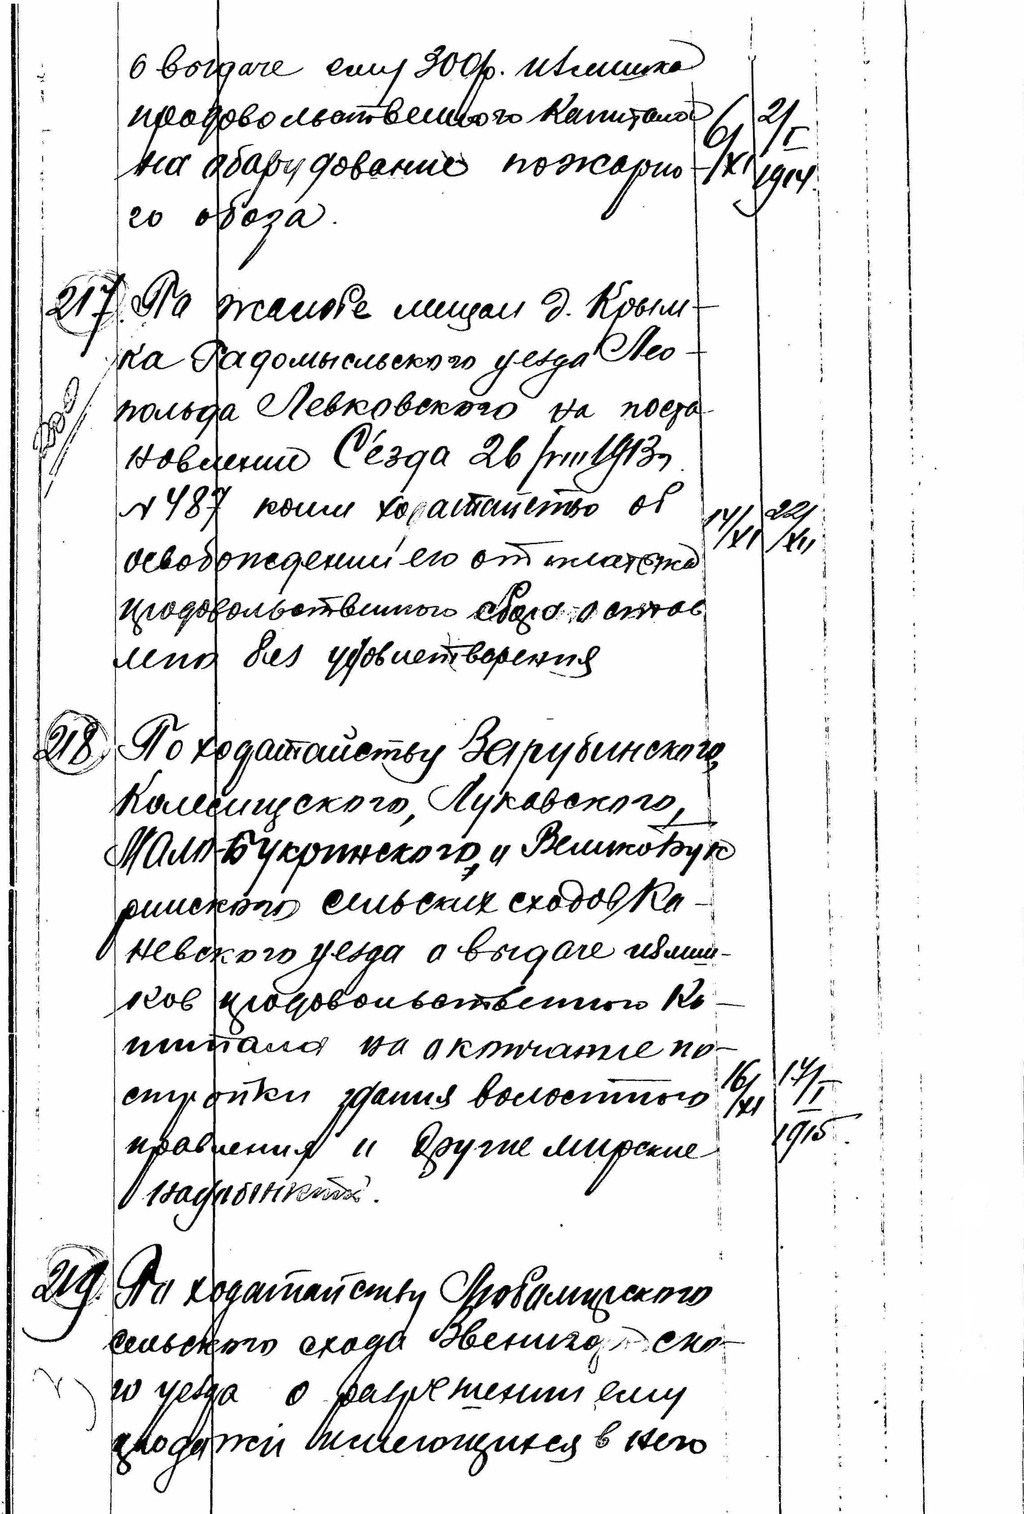 о выдаче ему 300р. излишка
продовольственного капитала
на оборудование пожарно-
го обоза.
6/XI
2/I
1914.
217. По жалобе мещан д. Крым-
ка Радомысльского уезда Лео-
польда Левковского на поста-
новлении Сезда 26/VIII 1913г
N 487 коим ходатайство об
освобождении его от платежа
продовольственного сбора остав
лено без удовлетворения
14/XI
22/XII
218. По ходатайству Зарубинского,
Колесищского, Луковского,
Мало Букринского, и Великобук
ринского сельских сходов Ка-
невского уезда о выдаче излиш-
ков продовольственного Ка-
питала на окончание по-
стройки здания волостного
правления и другие мирские
надобности.
16/XI
17/I
1915.
219. По ходатайству Любомирского
сельского схода Звенигородско-
го уезда о разрешении ему
продажи имеющихся в него